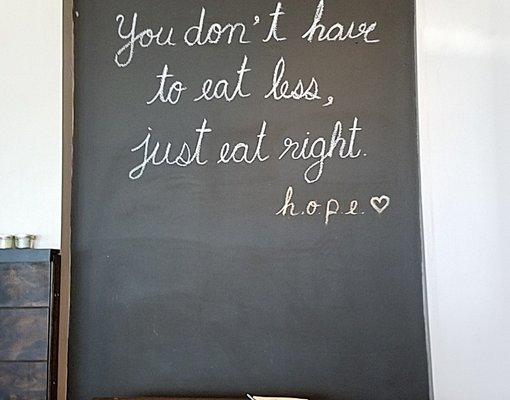 You don't have
to eat less,
just eat right.
h.o.p.e. ♡